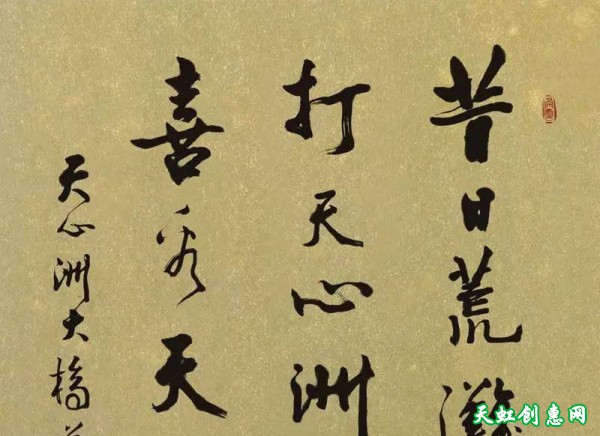 昔日荒
打天心洲
喜看天
天心洲大橋
天虹创惠网